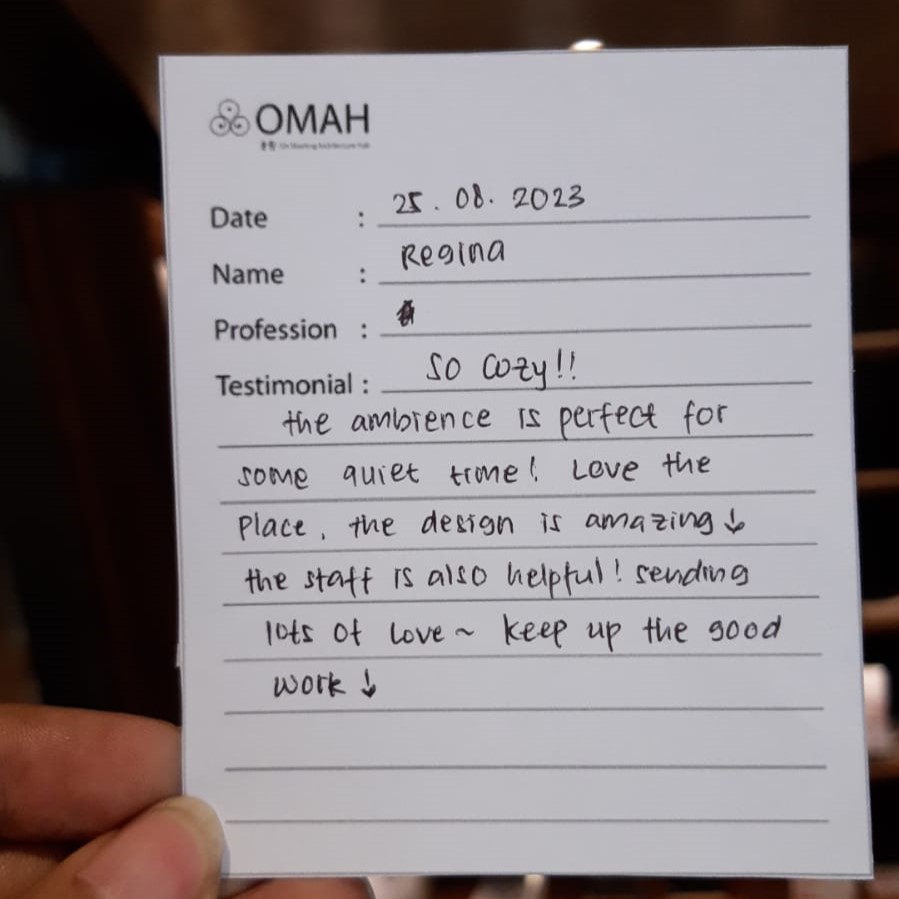 OMAH
Date : 25.08.2023
Name : Regina
Profession :
Testimonial : So cozy!!
the ambience is perfect for
some quiet time! Love the
place, the design is amazing ↓
the staff is also helpful! sending
lots of love ~ keep up the good
work ↓